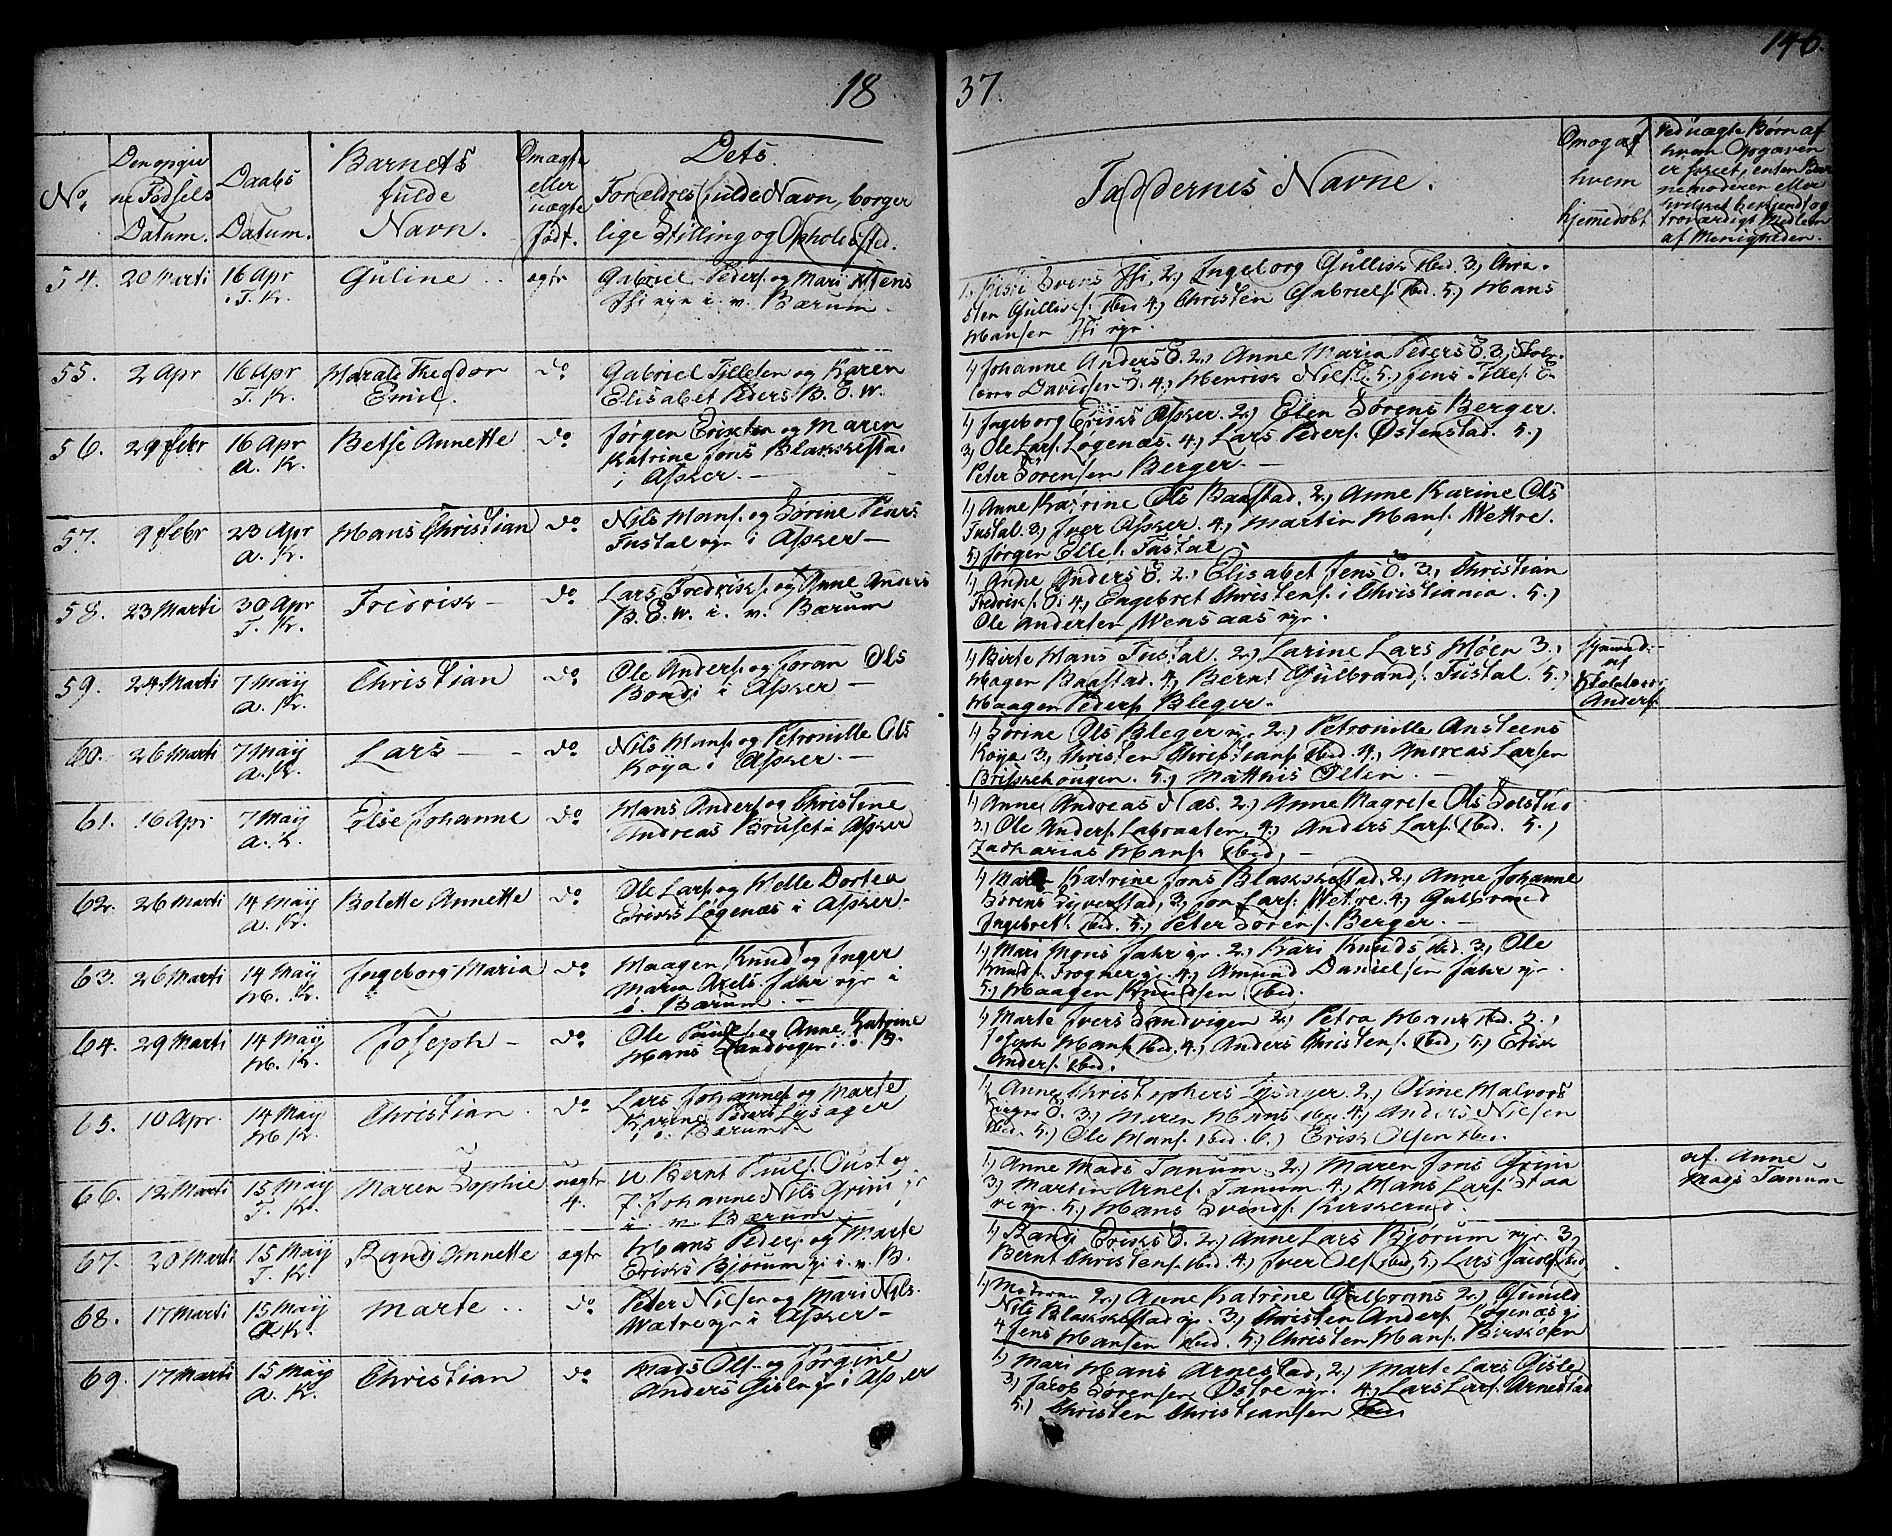 146.
18 37.
No.
Den opgiv
ne Fødsels
Datum.
Daabs
Datum.
Barnets
fulde
Navn.
Om ægte
eller
uægte
født.
Dets
Forældres fulde Navn, borger
lige Stilling og Opholdsted.
Faddernes Navne.
Om og af
hvem
hjemedøbt
Ved uægte Børn af
hvem Opgaven
er skeet, enten Bar
nemoderen eller
hvilket bekjendt og
troværdigt Medlem
af Menigheden.
54. 20 Marti 16 Apr Guline agtr Gabriel Peders. og Mari
T. K. i. v. Bærum.
2.) Ingeborg Gullik ibid. 3.) Chri
sten Gulliks. ibid 4.) Christen Gabriels. ibid. 5.) Hans
Hansen
55. 2 Apr 16 Apr Harald Theodor do Gabriel Tillesen og Karen
T. K. Emil. Elisabet Peders B. E. W.
1.) Johanne Anders E. 2.) Anne Maria Peders E. 3.)
Davidsen E. 4.) Henrik Nils E. 5.) Jens Tilles. E
56. 29 Febr 16 Apr Betse Annette do Jørgen Eriksen og Maren
A. K. Katrine Jons Blakkesta.
i Asker. —
1.) Ingeborg Eriks Asker. 2.) Elen Sørens Berger.
3.) Ole Lars. Løgenæs. 4.) Lars Peders. Østenstad. 5.)
Peter Sørensen Berger. —
57. 9 Febr 23 Apr Hans Christian do Nils Hans. og Sørine Peers
A. K. Tustal yr i Asker —
1.) Anne Katrine Ols Baastad. 2.) Anne Karine Ols
Tustal. 3.) Iver Asker. 4.) Martin Hans. Wettre.
5.) Jørgen Elles. Tustal
58. 23 Marti 30 Apr Fredrik — do Lars Fredriks. og Anne Anders
T. K. B. E. W. i. v. Bærum
1.) Anne Anders E. 2.) Elisabet Jens E. 3.) Christian
Fredriks. E. 4.) Engebret Christens. i Christiania. 5.)
Ole Andersen Wensaas yr.
59. 24 Marti 7 May Christian do Ole Anders. og Joran Ols
A. K. Bondi i Asker —
1.) Birte Hans Tustal. 2.) Larine Lars Møen 3.)
Hagen Baastad. 4.) Bernt Gulbrands. Tustal. 5.)
Haagen Peders. Bleger.
af
Anders.
60. 26 Marti 7 May Lars — do Nils Hans. og Petronille Ols
A. K. Køya i Asker. —
1.) Sørine Ols Bleger yr. 2.) Petronille Ansteens
Køya. 3.) Christen Christians. ibid. 4.) Andreas Larsen
Brisskehougen. 5.) Matthis Olsen. —
61. 16 Apr 7 May Else Johanne do Hans Anders. og Christine
A. K. Andreas Bruset i Asker
1.) Anne Andreas Næs. 2.) Anne Magrete Ols Solstad
3.) Ole Anders. Labraaten, 4.) Anders Lars. ibid. 5.)
Zacharias Hans. ibid. —
62. 26 Marti 14 May Bolette Annette do Ole Lars. og Helle Dortea
A. K. Eriks Løgenæs i Asker.
1.) Katrine Jons Blakkestad, 2.) Anne Johanne
Sørens Syverstad, 3.) Jon Lars. Wetre. 4.) Gulbrand
Ingebrets. ibid. 5.) Peter Sørens. Berger. —
63. 26 Marti 14 May Ingeborg Maria do Haagen Knuds. og Inger
H. K. Maria Axels. Jahr yr i
ø. Bærum. —
1.) Mari Mons Jahr yr. 2.) Kari Knuds ibid 3.) Ole
Knuds. Frogner yr. 4.) Amund Danielsen Jahr yr.
5.) Haagen Knudsen ibid.
64. 29 Marti 14 May Joseph — do Ole og Anne Katrine
H. K. Hans Sandvigen i. ø. B.
1.) Marte Ivers Sandvigen 2.) Petra Hans ibid. 3.)
Joseph Hans. ibid. 4.) Anders Christens. ibid, 5.) Erik
Anders. ibid.
65. 10 Apr. 14 May Christian do Lars Johannes. og Marte
H. K. Karine Peers Lysager
i ø. Bærum
1.) Anne Christophers Lysager 2.) Oline Halvors
3.) Maren Hans ibid 4.) Anders Nielsen
ibid. 5.) Ole Hans. ibid. 6.) Erik Olsen ibid.
66. 12 Marti 15 May Maren Sophie uægtr U Bernt Pauls. Oust og
T. K. 4. P. Johanne Nils Grini yr
i v Bærum
1.) Anne Mads Tanum 2.) Maren Jens Grini
3.) Martin Arnes. Tanum 4.) Hans Lars. Staa
5.) Hans Svends. Kirkerud.
af. Anne
Mads Tanum
67. 20 Marti 15 May Randi Annette ægtr Hans Peders. og Marte
T. K. Eriks Bjørum yr i. v. B.
1.) Randi Eriks E. 2.) Anne Lars Bjørum yr. 3.)
Bernt Christens. ibid. 4.) Iver Ols. ibid, 5.) Lars Jacobs. ibid
68. 17 Marti 15 May Marte do Peter Nielsen og Mari Nils.
A. K. Wætre yr i Asker —
1.) Moderen 2.) Anne Katrine Gulbrans 2.) Gunild
Nils Blakkestad yr. 3.) Christen Anders. Løgenæs yr
4 Jens Hansen ibid. 5.) Christen Hans. Birkolen
69. 17 Marti 15 May Christian do Mads Ols. og Jørgine
A. K. Anders Gisle yr i Asker
1.) Mari Hans Arnestad, 2.) Marte Lars Gisle
3.) Jacob Sørensen Østre yr. 4.) Lars Lars. Arnestad
5.) Christen Christiansen ibid.